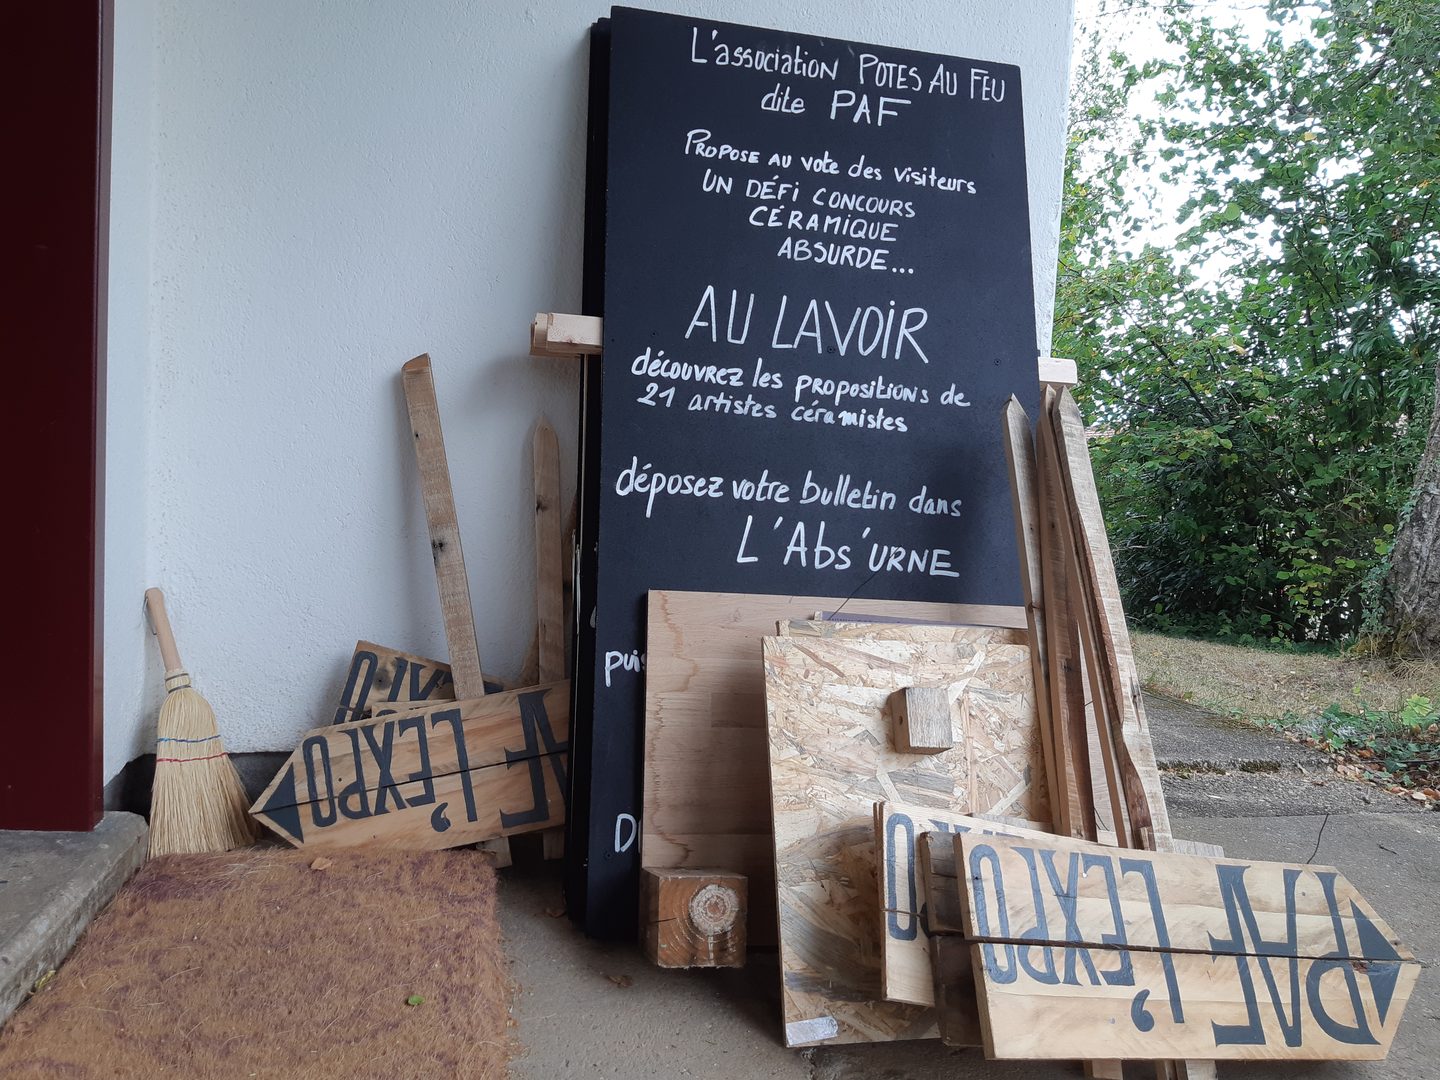 L'association POTES AU FEU
dite PAF
PROPOSE AU vote des visiteurs
UN DÉFI CONCOURS
CÉRAMIQUE
ABSURDE...
AU LAVOIR
découvrez les propositions de
21 artistes céramistes
déposez votre bulletin dans
L'Abs'URNE
puis
PAF L'EXPO
PAF L'EXPO